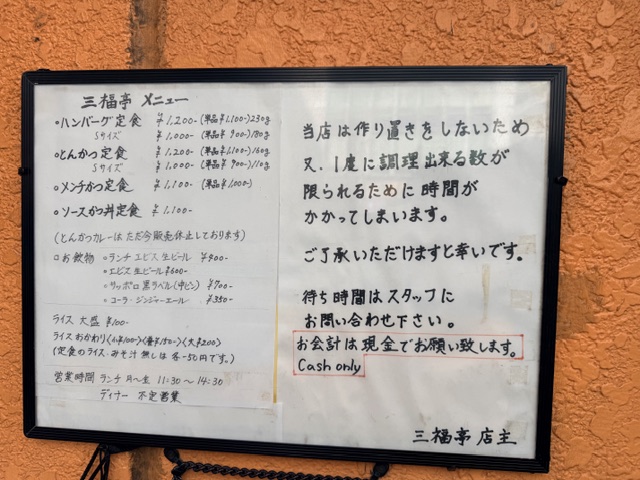 三福亭 メニュー
○ハンバーグ定食 ¥1,200- (単品¥1,100-)230g
Sサイズ ¥1,000- (単品¥900-)180g
○とんかつ定食 ¥1,200- (単品¥1,100-)160g
Sサイズ ¥1,000- (単品¥900-)110g
○メンチかつ定食 ¥1,100- (単品¥1,000-)
○ソースかつ丼定食 ¥1,100-
(とんかつカレーはただ今販売休止しております)
□お飲物 ○ランチ エビス 生ビール ¥400-
○エビス 生ビール¥600-
○サッポロ 黒ラベル(中ビン) ¥700-
○コーラ・ジンジャーエール ¥350-
ライス 大盛 ¥100-
ライスおかわり<小¥100-><普¥150-><大¥200>
(定食のライス・みそ汁 無しは 各-50円です。)
営業時間 ランチ 月〜金 11:30〜14:30
ディナー 不定営業
当店は作り置きをしないため
又、1度に調理出来る数が
限られるために時間が
かかってしまいます。
ご了承いただけますと幸いです。
待ち時間はスタッフに
お問い合わせ下さい。
お会計は現金でお願い致します。
Cash only
三福亭 店主